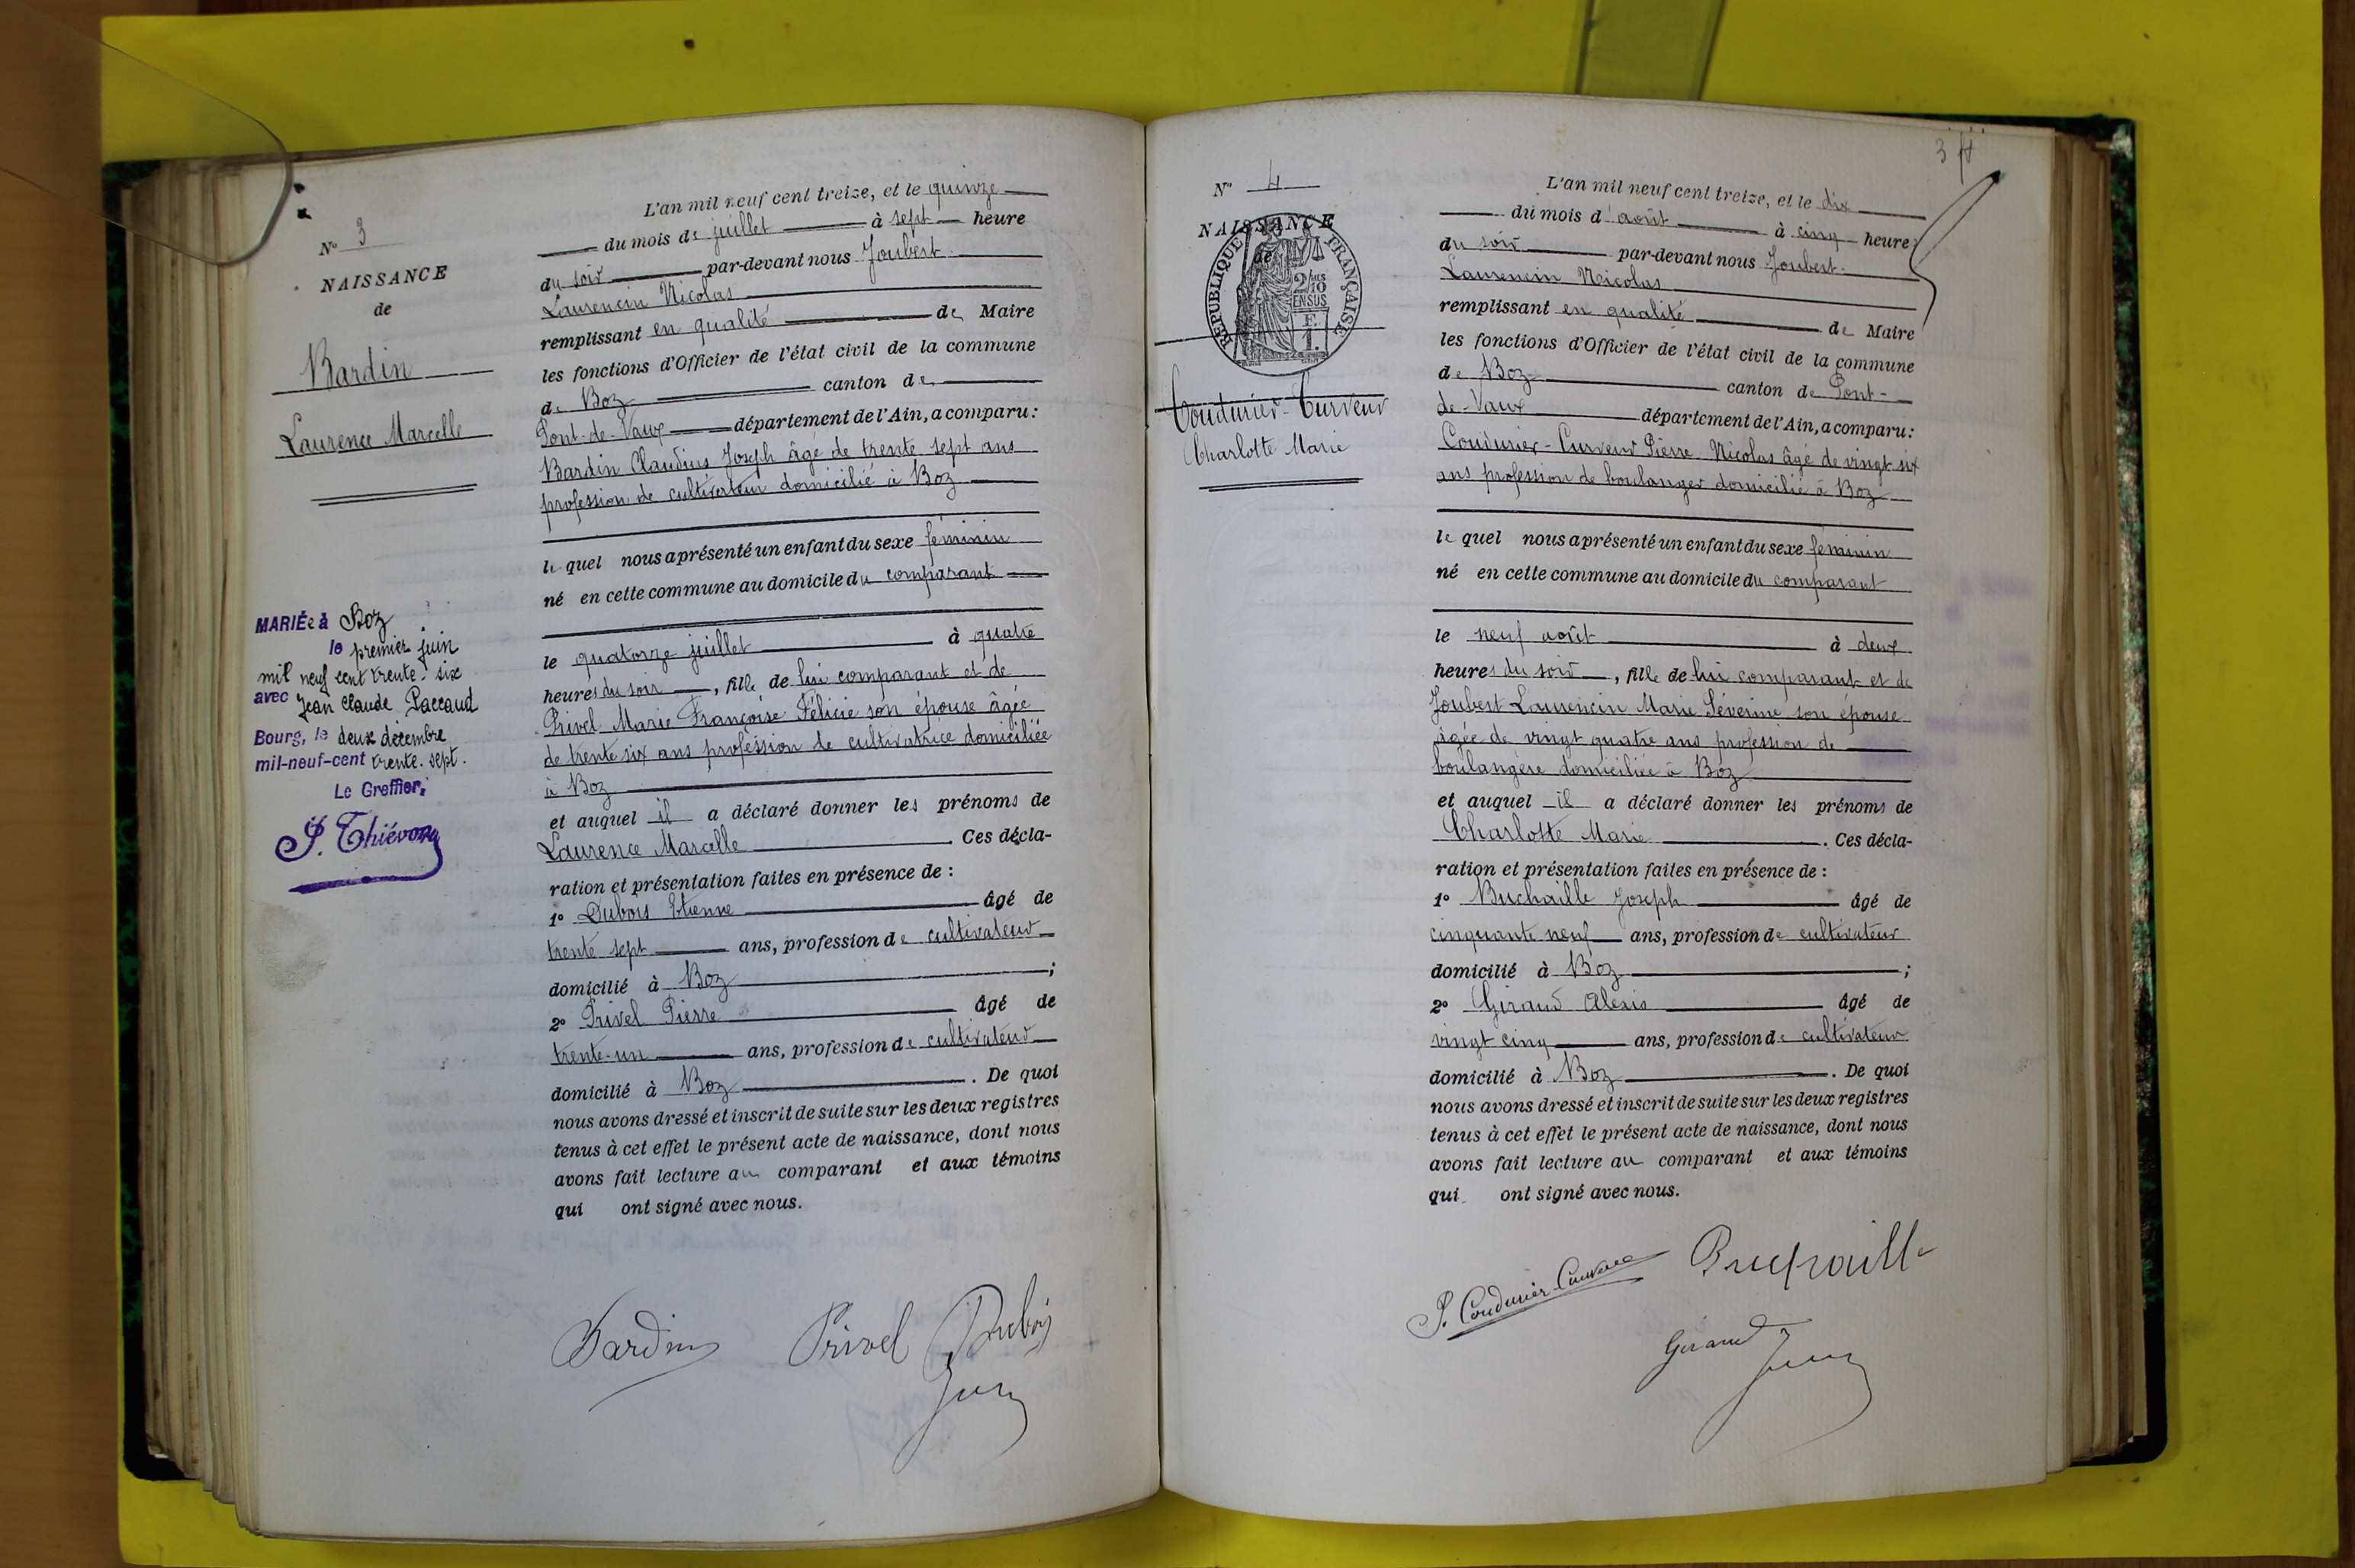 N° 3
NAISSANCE
de
Bardin
Laurence Marcelle
MARIÉe à Boz
le premier juin
mil neuf cent trente-six
avec Jean Claude Paccaud
Bourg, le deux décembre
mil-neuf-cent trente-sept.
Le Greffier,
L'an mil neuf cent treize, et le quinze
du mois de juillet à sept heure
du soir par-devant nous Joubert
Laurencin Nicolas
remplissant en qualité de Maire
les fonctions d'Officier de l'état civil de la commune
de Boz canton de
Pont-de-Vaux département de l'Ain, a comparu :
Bardin Claudius Joseph âgé de trente sept ans
profession de cultivateur domicilié à Boz
le quel nous a présenté un enfant du sexe féminin
né en cette commune au domicile du comparant
le quatorze juillet à quatre
heures du soir, fille de lui comparant et de
Privel Marie Françoise Félicie son épouse âgée
de trente six ans profession de cultivatrice domiciliée
à Boz
et auquel il a déclaré donner les prénoms de
Laurence Marcelle. Ces décla-
ration et présentation faites en présence de :
1° Dubois Etienne âgé de
trente sept ans, profession de cultivateur
domicilié à Boz ;
2° Privel Pierre âgé de
trente-un ans, profession de cultivateur
domicilié à Boz. De quoi
nous avons dressé et inscrit de suite sur les deux registres
tenus à cet effet le présent acte de naissance, dont nous
avons fait lecture au comparant et aux témoins
qui ont signé avec nous.
Bardin Privel Dubois
N° 4
NAISSANCE
de
REPUBLIQUE FRANÇAISE
2/10
EN SUS
F.
1.
Coudurier-Curveur
Charlotte Marie
L'an mil neuf cent treize, et le dix
du mois d'août à cinq heures
du soir par-devant nous Joubert
Laurencin Nicolas
remplissant en qualité de Maire
les fonctions d'Officier de l'état civil de la commune
de Boz canton de Pont-
de-Vaux département de l'Ain, a comparu :
Coudurier-Curveur Pierre Nicolas âgé de vingt six
ans profession de boulanger domicilié à Boz
le quel nous a présenté un enfant du sexe féminin
né en cette commune au domicile du comparant
le neuf août à deux
heures du soir, fille de lui comparant et de
Joubert Laurencin Marie Séverine son épouse
âgée de vingt quatre ans profession de
boulangère domiciliée à Boz
et auquel il a déclaré donner les prénoms de
Charlotte Marie. Ces décla-
ration et présentation faites en présence de :
1° Buchaille Joseph âgé de
cinquante neuf ans, profession de cultivateur
domicilié à Boz ;
2° Giraud Alexis âgé de
vingt cinq ans, profession de cultivateur
domicilié à Boz. De quoi
nous avons dressé et inscrit de suite sur les deux registres
tenus à cet effet le présent acte de naissance, dont nous
avons fait lecture au comparant et aux témoins
qui ont signé avec nous.
P. Coudurier-Curveur Buchaille
Giraud